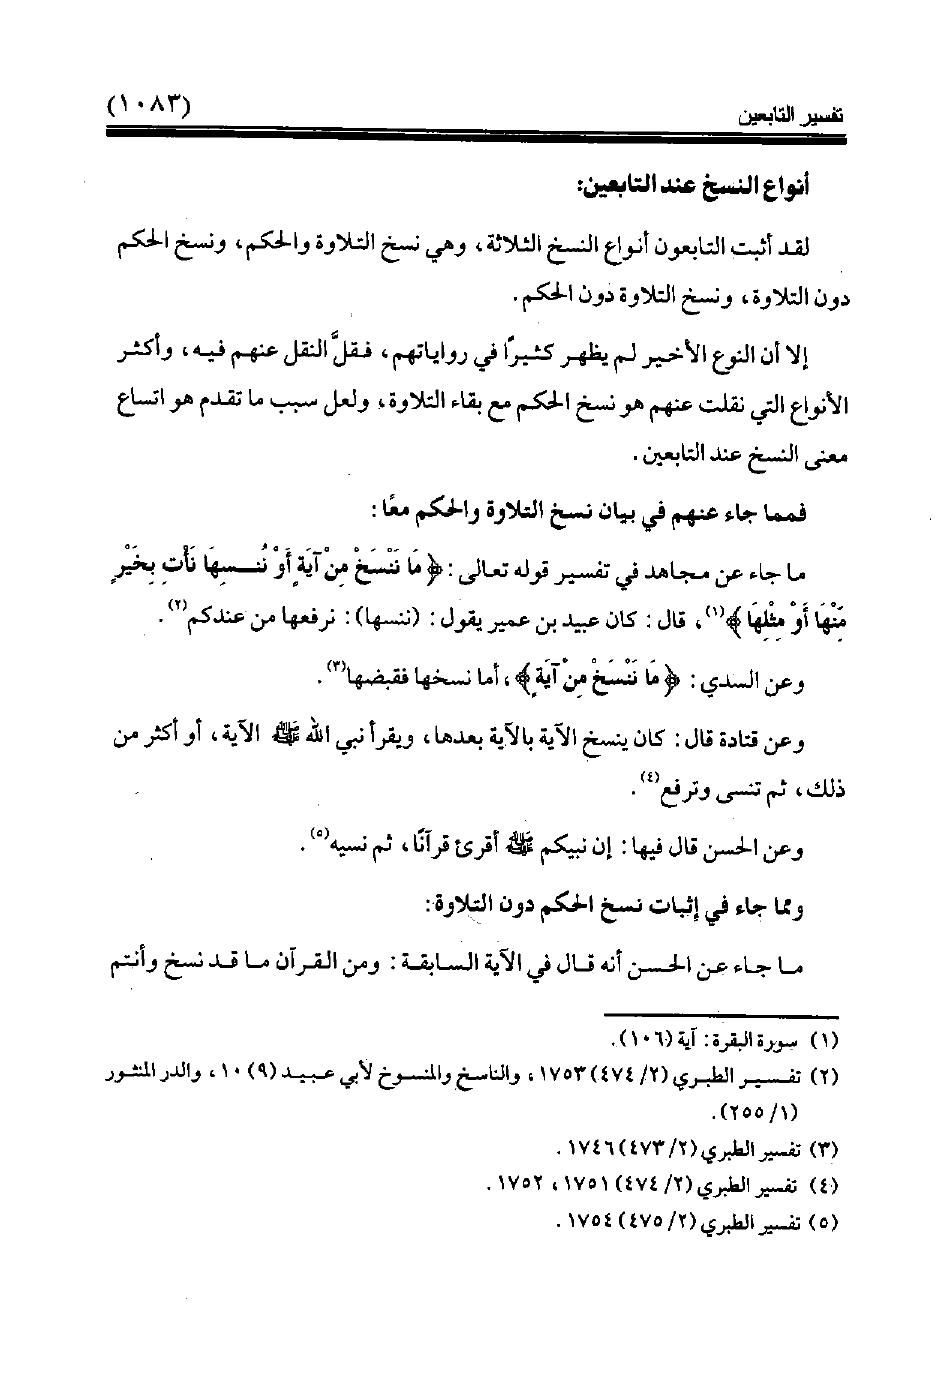 تفسير التابعين
(١٠٨٣)
أنواع النسخ عند التابعين:
لقد أثبت التابعون أنواع النسخ الثلاثة، وهي نسخ التلاوة والحكم، ونسخ الحكم
دون التلاوة، ونسخ التلاوة دون الحكم.
إلا أن النوع الأخير لم يظهر كثيرًا في رواياتهم، فقلَّ النقل عنهم فيه، وأكثر
الأنواع التي نقلت عنهم هو نسخ الحكم مع بقاء التلاوة، ولعل سبب ما تقدم هو اتساع
معنى النسخ عند التابعين.
فمما جاء عنهم في بيان نسخ التلاوة والحكم معًا:
ما جاء عن مجاهد في تفسير قوله تعالى: ﴿مَا نَنْسَخْ مِنْ آيَةٍ أَوْ نُنْسِهَا نَأْتِ بِخَيْرٍ
مِّنْهَا أَوْ مِثْلِهَا﴾(١)، قال: كان عبيد بن عمير يقول: (ننسها): نرفعها من عندكم(٢).
وعن السدي: ﴿مَا نَنْسَخْ مِنْ آيَةٍ﴾، أما نسخها فقبضها(٣).
وعن قتادة قال: كان ينسخ الآية بالآية بعدها، ويقرأ نبي الله ﷺ الآية، أو أكثر من
ذلك، ثم تنسى وترفع(٤).
وعن الحسن قال فيها: إن نبيكم ﷺ أقرئ قرآنًا، ثم نسيه(٥).
ومما جاء في إثبات نسخ الحكم دون التلاوة:
ما جاء عن الحسن أنه قال في الآية السابقة: ومن القرآن ما قد نسخ وأنتم
(١) سورة البقرة: آية (١٠٦).
(٢) تفسير الطبري (٢/ ٤٧٤) ١٧٥٣، والناسخ والمنسوخ لأبي عبيد (٩) ١٠، والدر المنثور
(١/ ٢٥٥).
(٣) تفسير الطبري (٢/ ٤٧٣) ١٧٤٦.
(٤) تفسير الطبري (٢/ ٤٧٤) ١٧٥١، ١٧٥٢.
(٥) تفسير الطبري (٢/ ٤٧٥) ١٧٥٤.